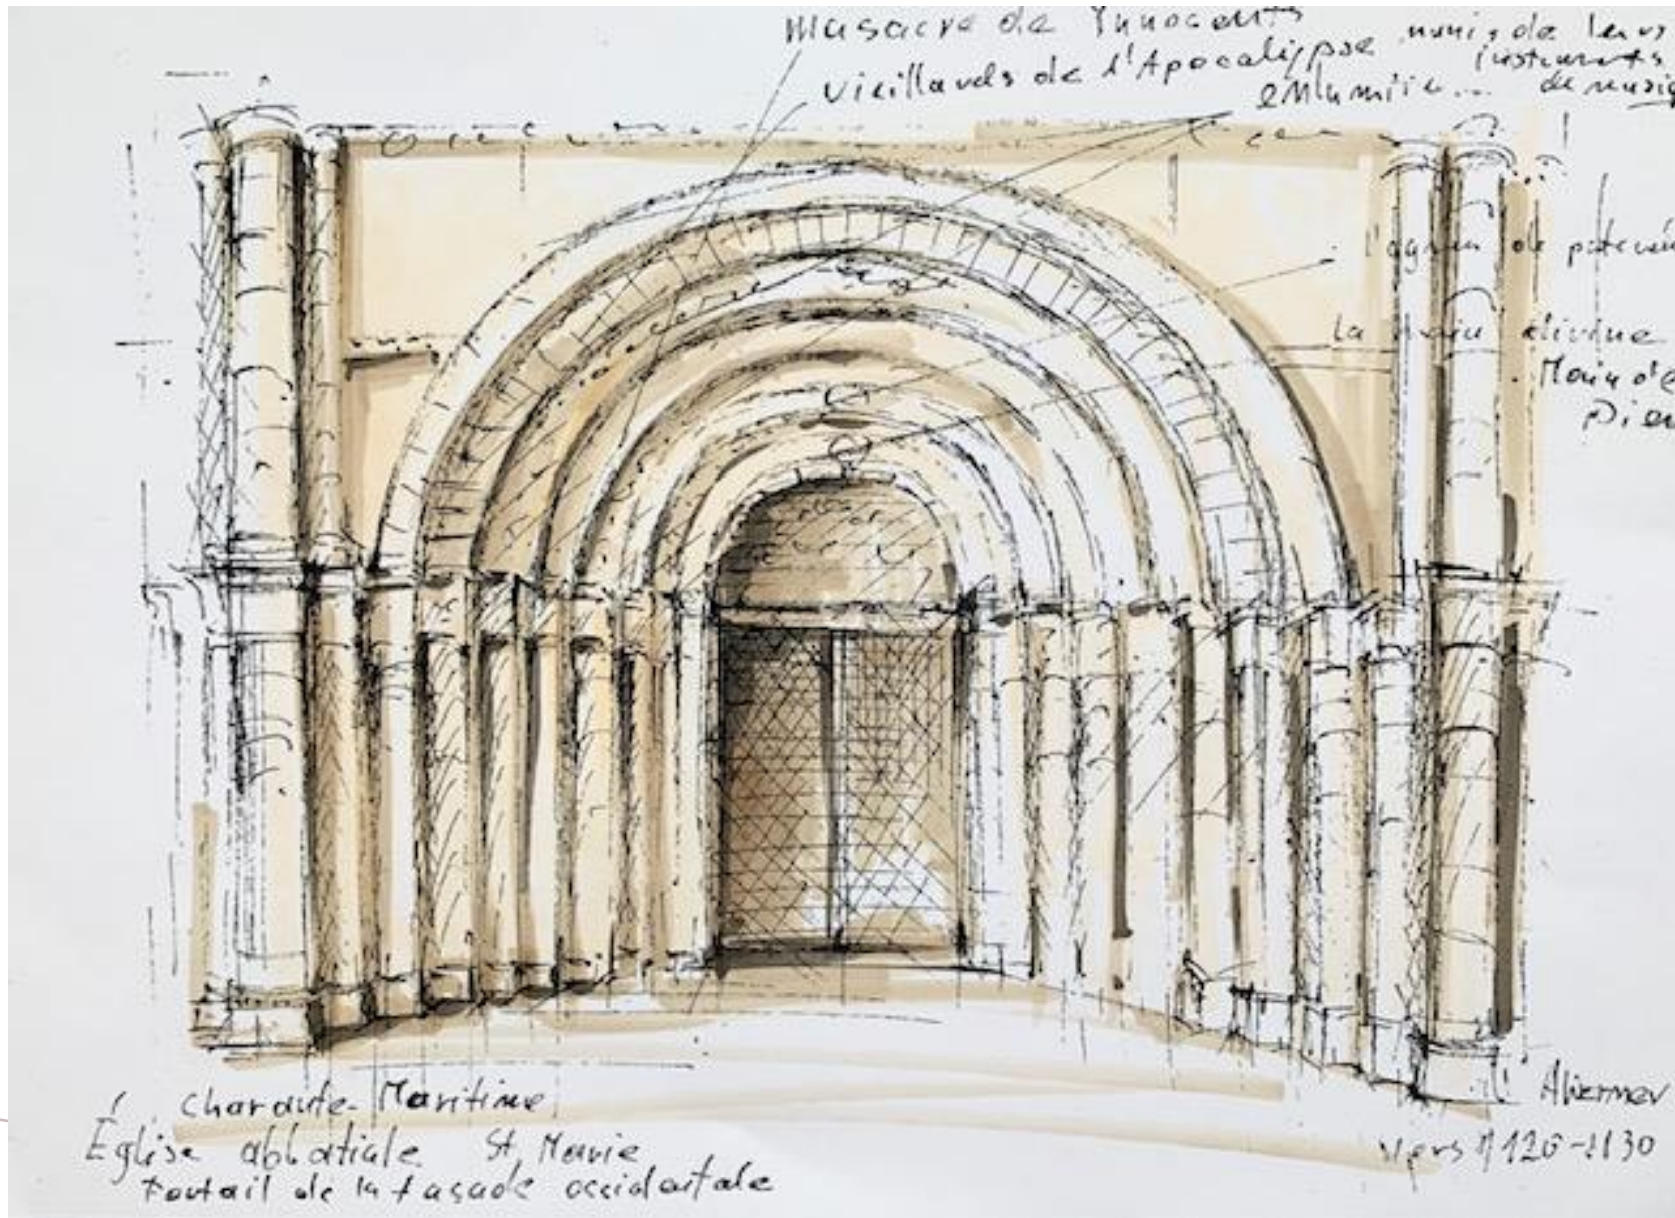 Masacre de Innocents
Vieillards de l'Apocalypse
munis de leurs
instruments
de music
enlumiie...
l'agneu de
La divine
Main d'
Dieu
Charante-Maritime
Église abbatiale St, Marie
Portail de la façade occidentale
Vers 1120-1130